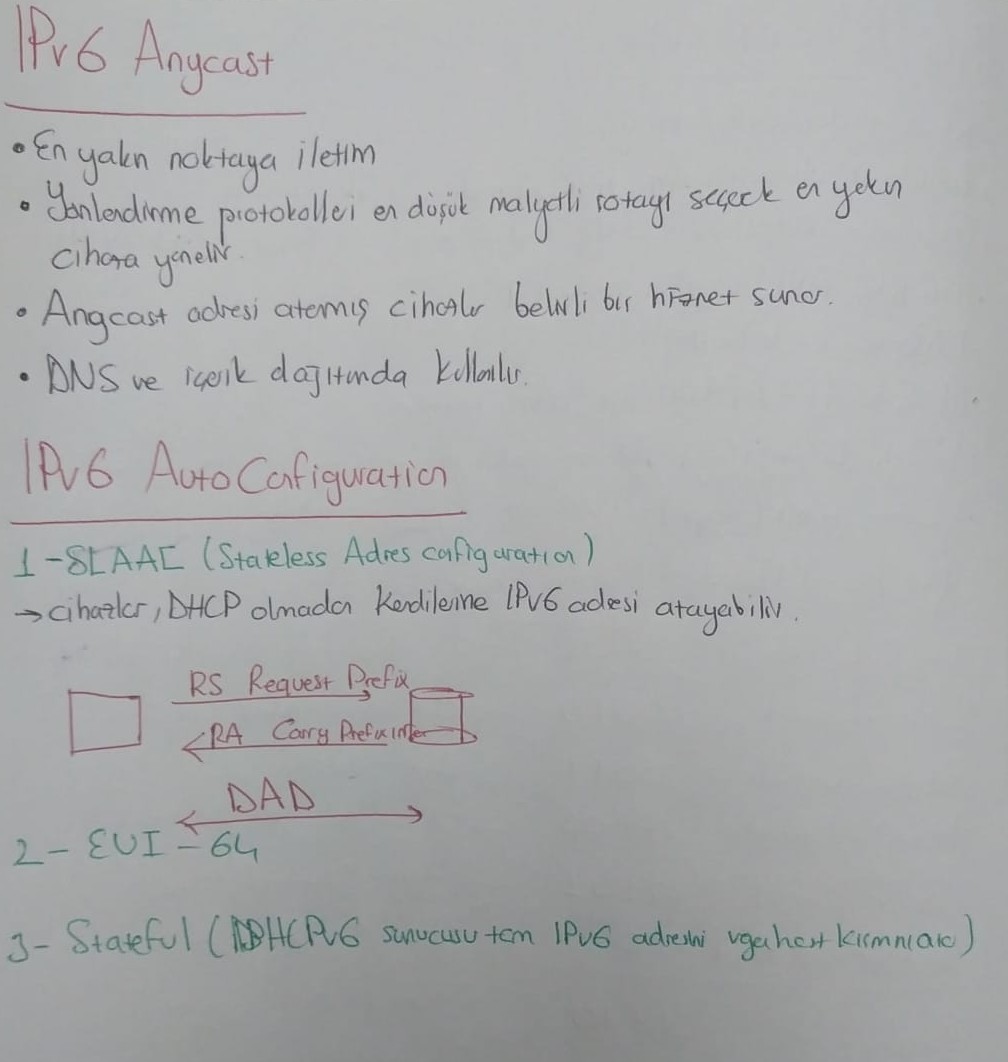 IPv6 Anycast
• En yakın noktaya iletim
• Yönlendirme protokolleri en düşük maliyetli rotayı seçerek en yakın
cihaza yönelir.
• Angcast adresi atanmış cihazlar belirli bir hizmet sunar.
• DNS ve içerik dağıtımında kullanılır.
IPv6 AutoConfiguration
1-SLAAC (Stateless Adres configuration)
→ cihazlar, DHCP olmadan kendilerine IPv6 adresi atayabilir.
RS Request Prefix
RA Carry Prefix info
DAD
2- EUI-64
3- Stateful (DHCPv6 sunucusu tam IPv6 adresini veya host kısmını alır)